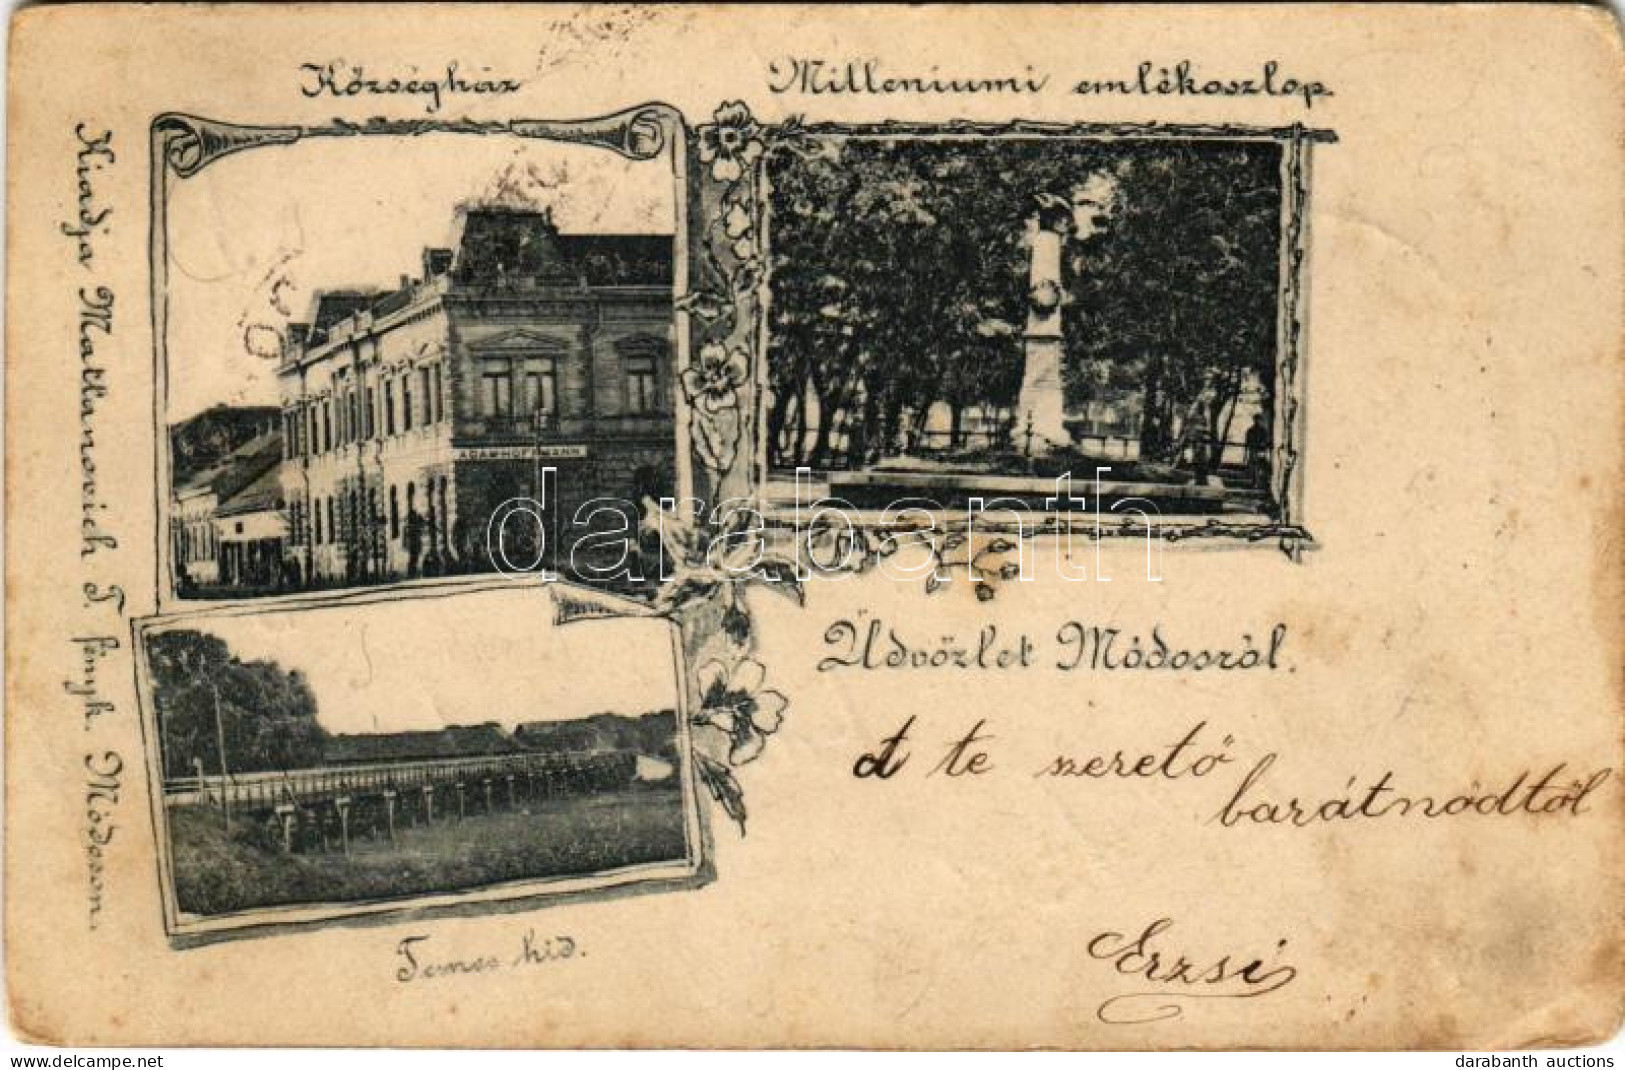 Községház
Milleniumi emlékoszlop
Kiadja Matlanovich T. fényk. Módoson.
ADAM HOFFMANN
darabanth
Üdvözlet Módosról.
A te szerető
barátnődtől
Erzsi
Temes hid.
www.delcampe.net
darabanth auctions